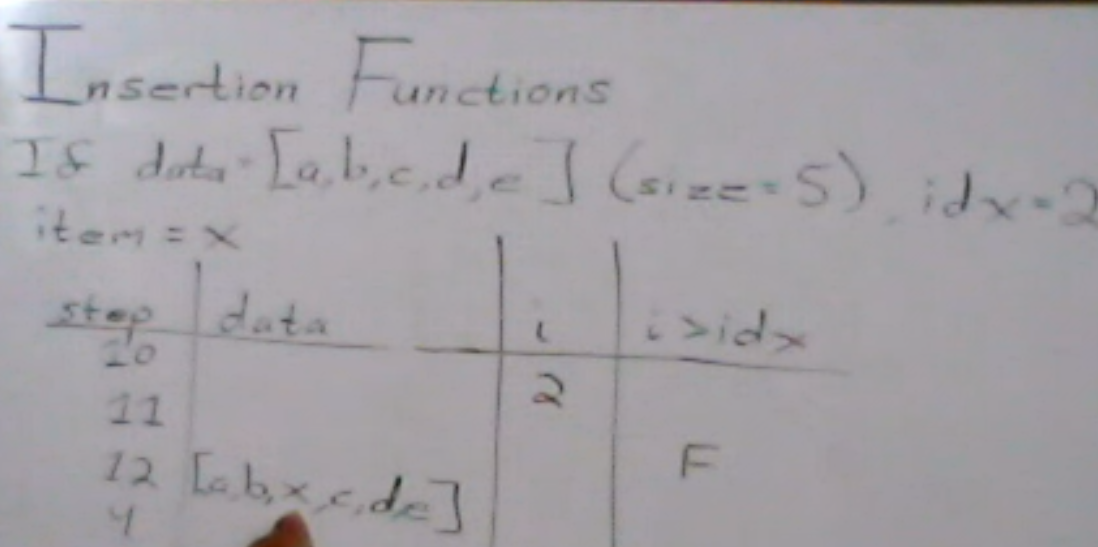 Insertion Functions
If data=[a,b,c,d,e] (size=5), idx=2
item = x
step data i i>idx
10
2
11
F
12 [a,b,x,c,d,e]
4